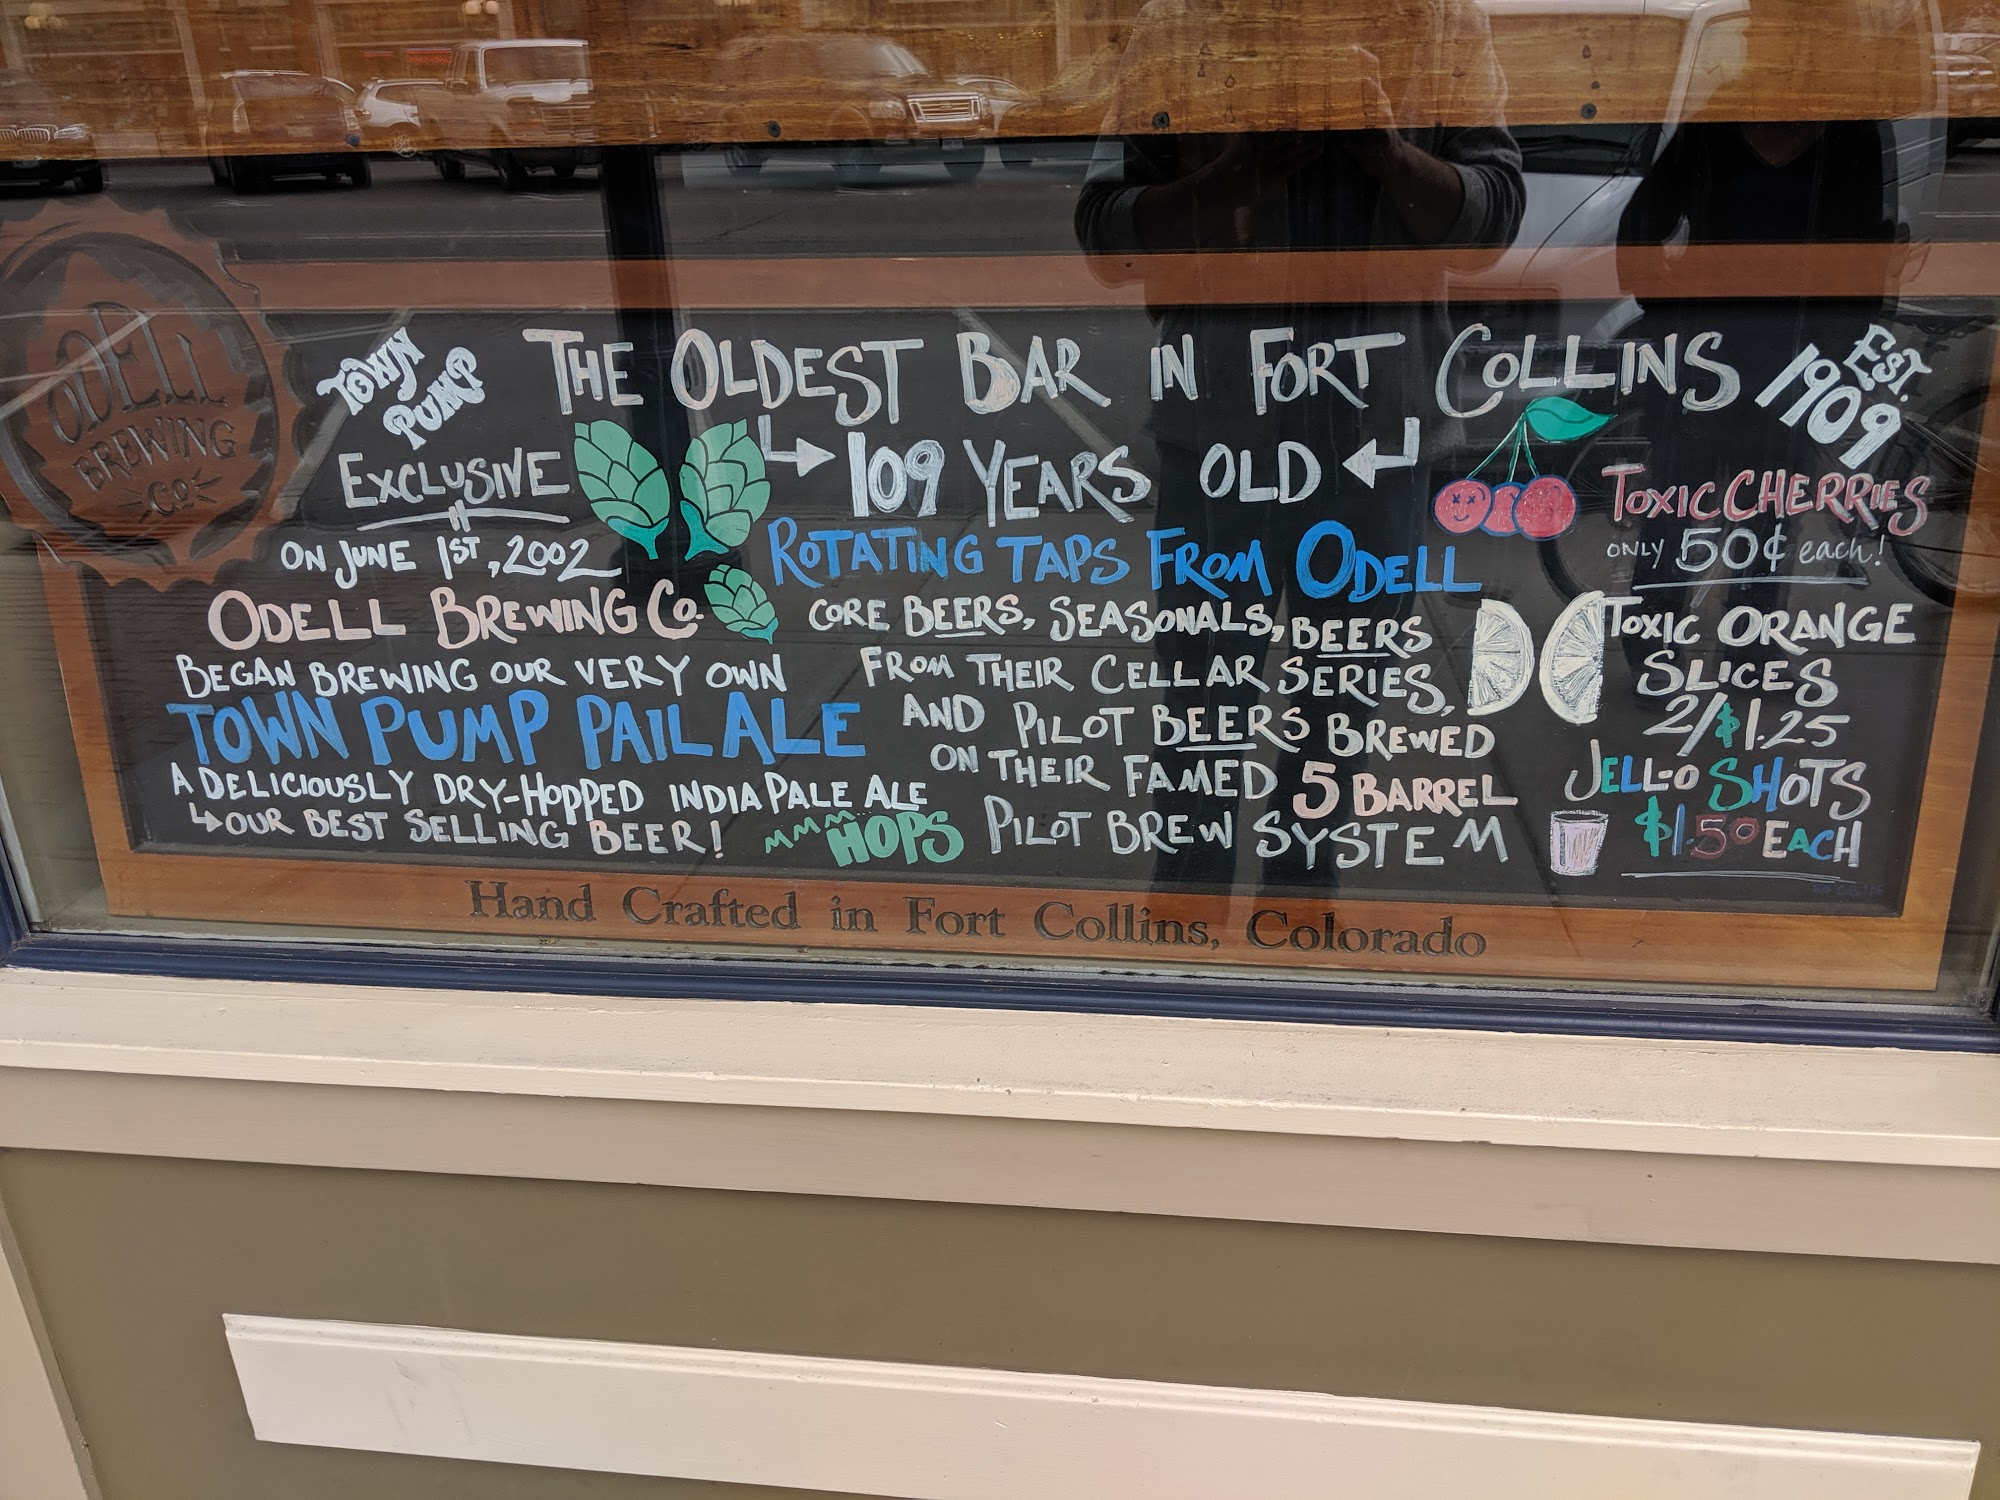 ODELL
BREWING
CO
TOWN
PUMP
THE OLDEST BAR IN FORT COLLINS
EST.
1909
109 YEARS OLD
EXCLUSIVE
ON JUNE 1ST, 2002
ODELL BREWING CO.
BEGAN BREWING OUR VERY OWN
TOWN PUMP PAIL ALE
A DELICIOUSLY DRY-HOPPED INDIA PALE ALE
OUR BEST SELLING BEER!
MMMM... HOPS
ROTATING TAPS FROM ODELL
CORE BEERS, SEASONALS, BEERS
FROM THEIR CELLAR SERIES,
AND PILOT BEERS BREWED
ON THEIR FAMED 5 BARREL
PILOT BREW SYSTEM
TOXIC CHERRIES
ONLY 50¢ each!
TOXIC ORANGE
SLICES
2/$1.25
JELL-O SHOTS
$1.50 EACH
Hand Crafted in Fort Collins, Colorado